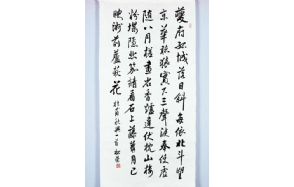 夔府孤城落日斜每依北斗望
京華聽猿實下三聲淚奉使虛
随八月槎畫省香爐違伏枕山樓
粉堞隐悲笳請看石上藤蘿月已
映洲前蘆荻花 杜甫秋興一首